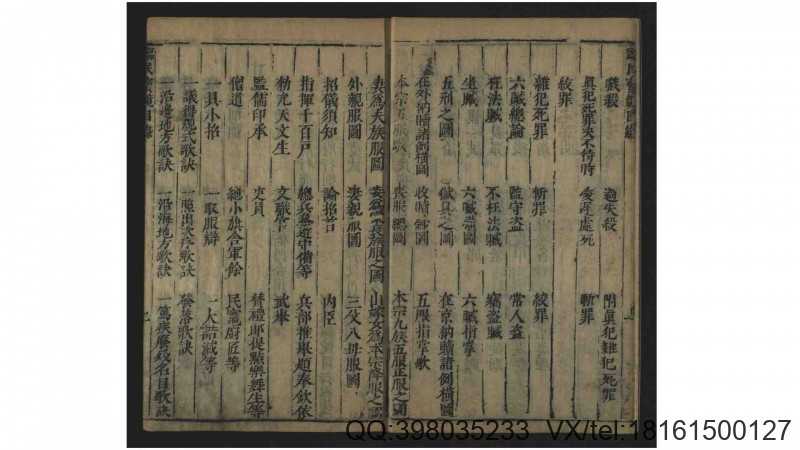 戲殺 過失殺 附眞犯雜犯死罪
眞犯死罪决不待時 凌遲處死 斬罪
絞罪
雜犯死罪 斬罪 絞罪
六贓總論 監守盜 常人盜
枉法贓 不枉法贓 竊盜贓
坐贓 六贓總圖 六贓指掌
五刑之圖 獄具之圖 在京納贖諸例橫圖
在外納贖諸例橫圖 收贖鈔圖 五服指掌歌
本宗五服 喪服總圖 本宗九族五服正服之圖
妻為夫族服圖 妾為家長族服之圖
外親服圖 妻親服圖 三父八母服圖
招儀須知 論招首 內臣
指揮千百戶 總兵 守備等 兵部推舉 奉欽依
勳 天文生 文職 武舉
監儒印承 吏員 贊禮郎提點樂舞生等
僧道 總小旗合軍餘 民竈府匠等
一具小招 一取服辯 一大誥減等
一議得親式歌訣 一照出次序歌訣 發落歌訣
一沿邊地方歌訣 一沿海地方歌訣 一篤疾廢疾名目歌訣
QQ:398035233 VX/tel:18161500127